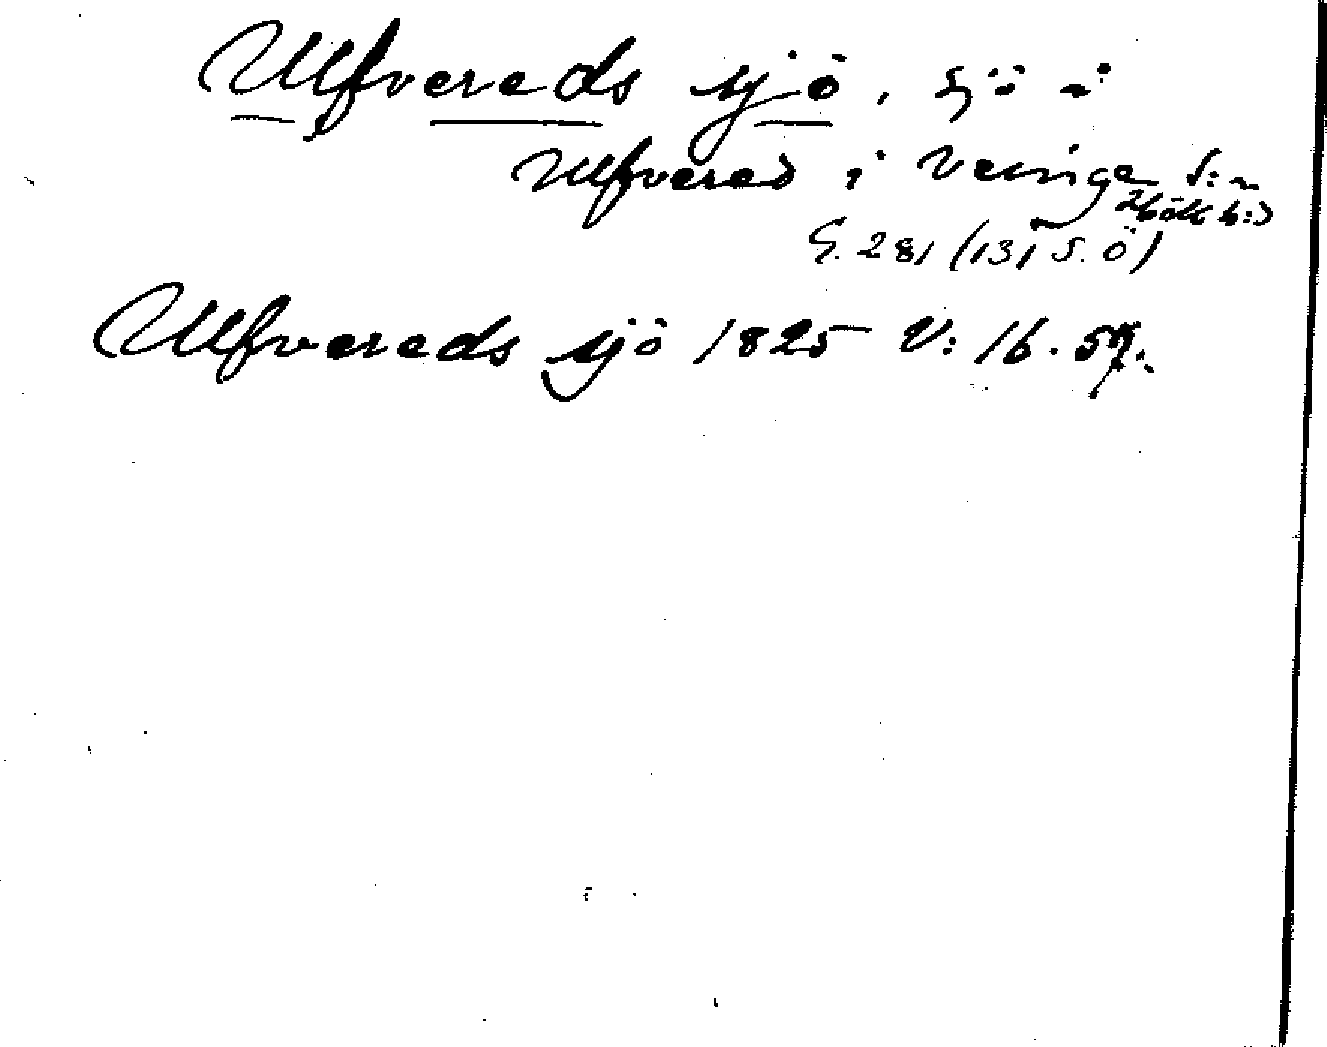 Ulfvereds sjö, sjö i
Ulfvered i Veinge s:n
Hök h:d
G. 281 (131 S.Ö)
Ulfvereds sjö 1825 V: 16. 57.